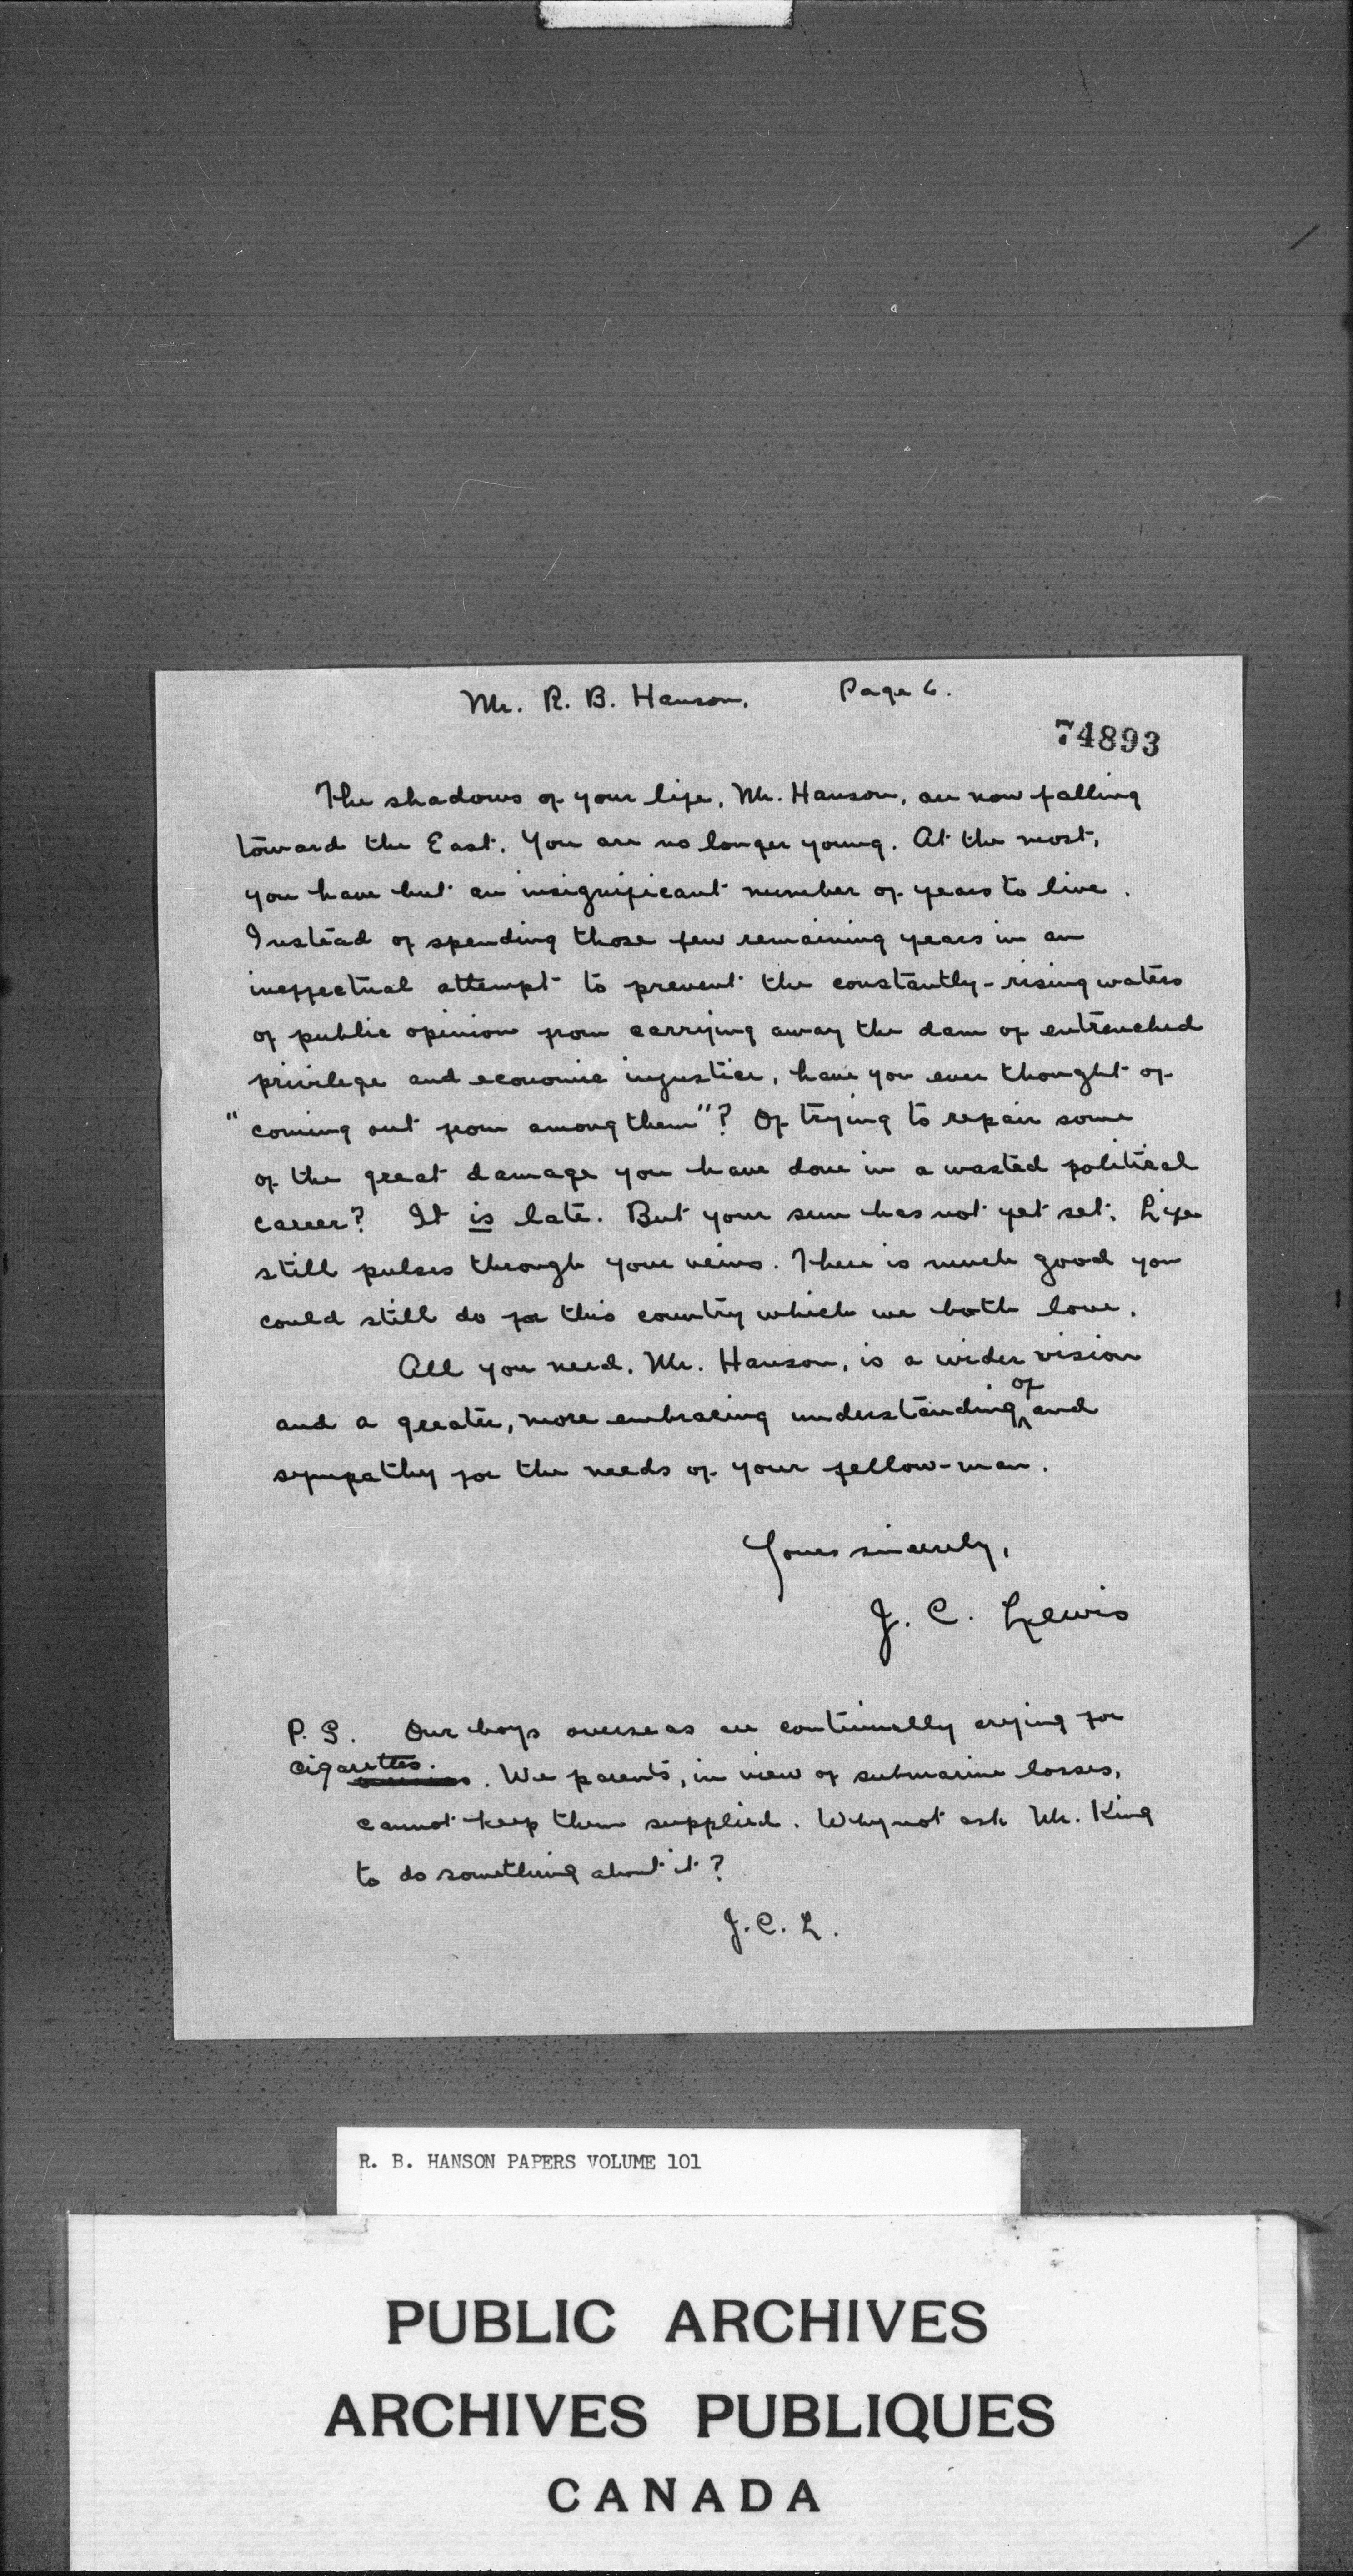 Mr. R. B. Hanson. Page 6.
74893
The shadows of your life, Mr. Hanson, are now falling
toward the East. You are no longer young. At the most,
you have but an insignificant number of years to live.
Instead of spending those few remaining years in an
ineffectual attempt to prevent the constantly-rising waters
of public opinion from carrying away the dam of entrenched
privilege and economic injustice, have you ever thought of
"coming out from among them"? Of trying to repair some
of the great damage you have done in a wasted political
career? It is late. But your sun has not yet set. Life
still pulses through your veins. There is much good you
could still do for this country which we both love.
All you need, Mr. Hanson, is a wider vision
and a greater, more embracing understanding of and
sympathy for the needs of your fellow-man.
Yours sincerely,
J. C. Lewis
P. S. Our boys overseas are continually crying for
cigarettes. We parents, in view of submarine losses,
cannot keep them supplied. Why not ask Mr. King
to do something about it?
J. C. L.
R. B. HANSON PAPERS VOLUME 101
PUBLIC ARCHIVES
ARCHIVES PUBLIQUES
CANADA